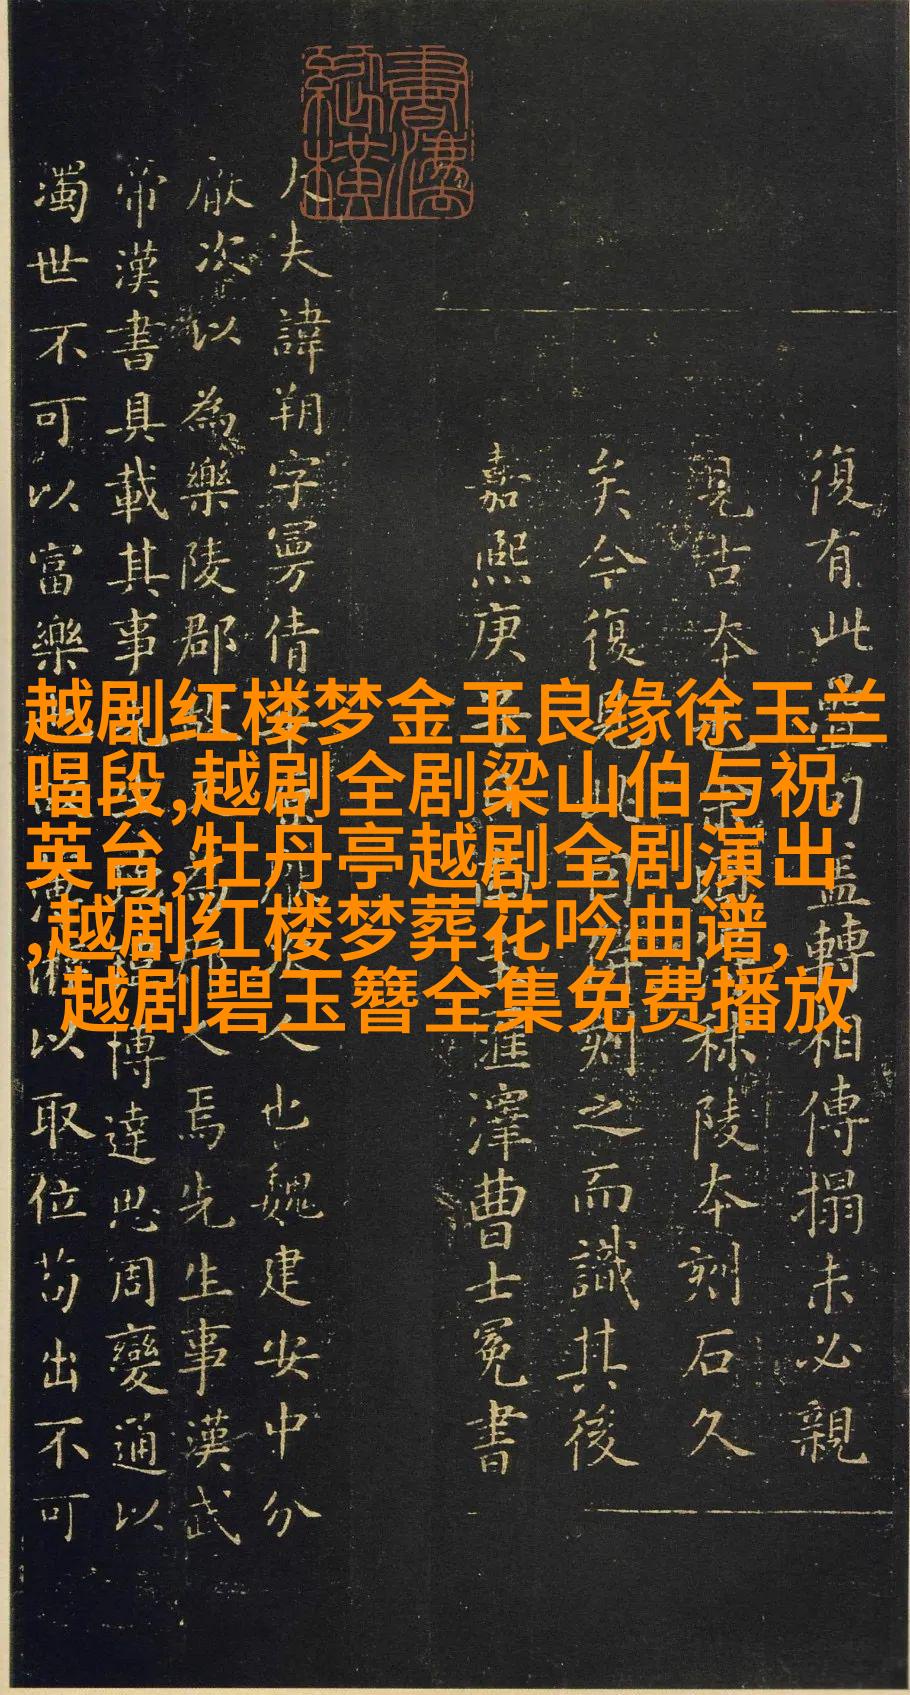 越剧红楼梦金玉良缘徐玉兰
唱段,越剧全剧梁山伯与祝
英台,牡丹亭越剧全剧演出
,越剧红楼梦葬花吟曲谱,
越剧碧玉簪全集免费播放
復有此轉相傳搨未必親
見古本陵本刻石久
矣今復刻之而識其後
嘉熙庚匯澤曹士冕書
夫諱朔字曼倩人也魏建安中分
厭次以為樂陵郡人焉先生事漢武
帝漢書具載其事博達思周變通以
濁世不可以富樂以取位苟出不可